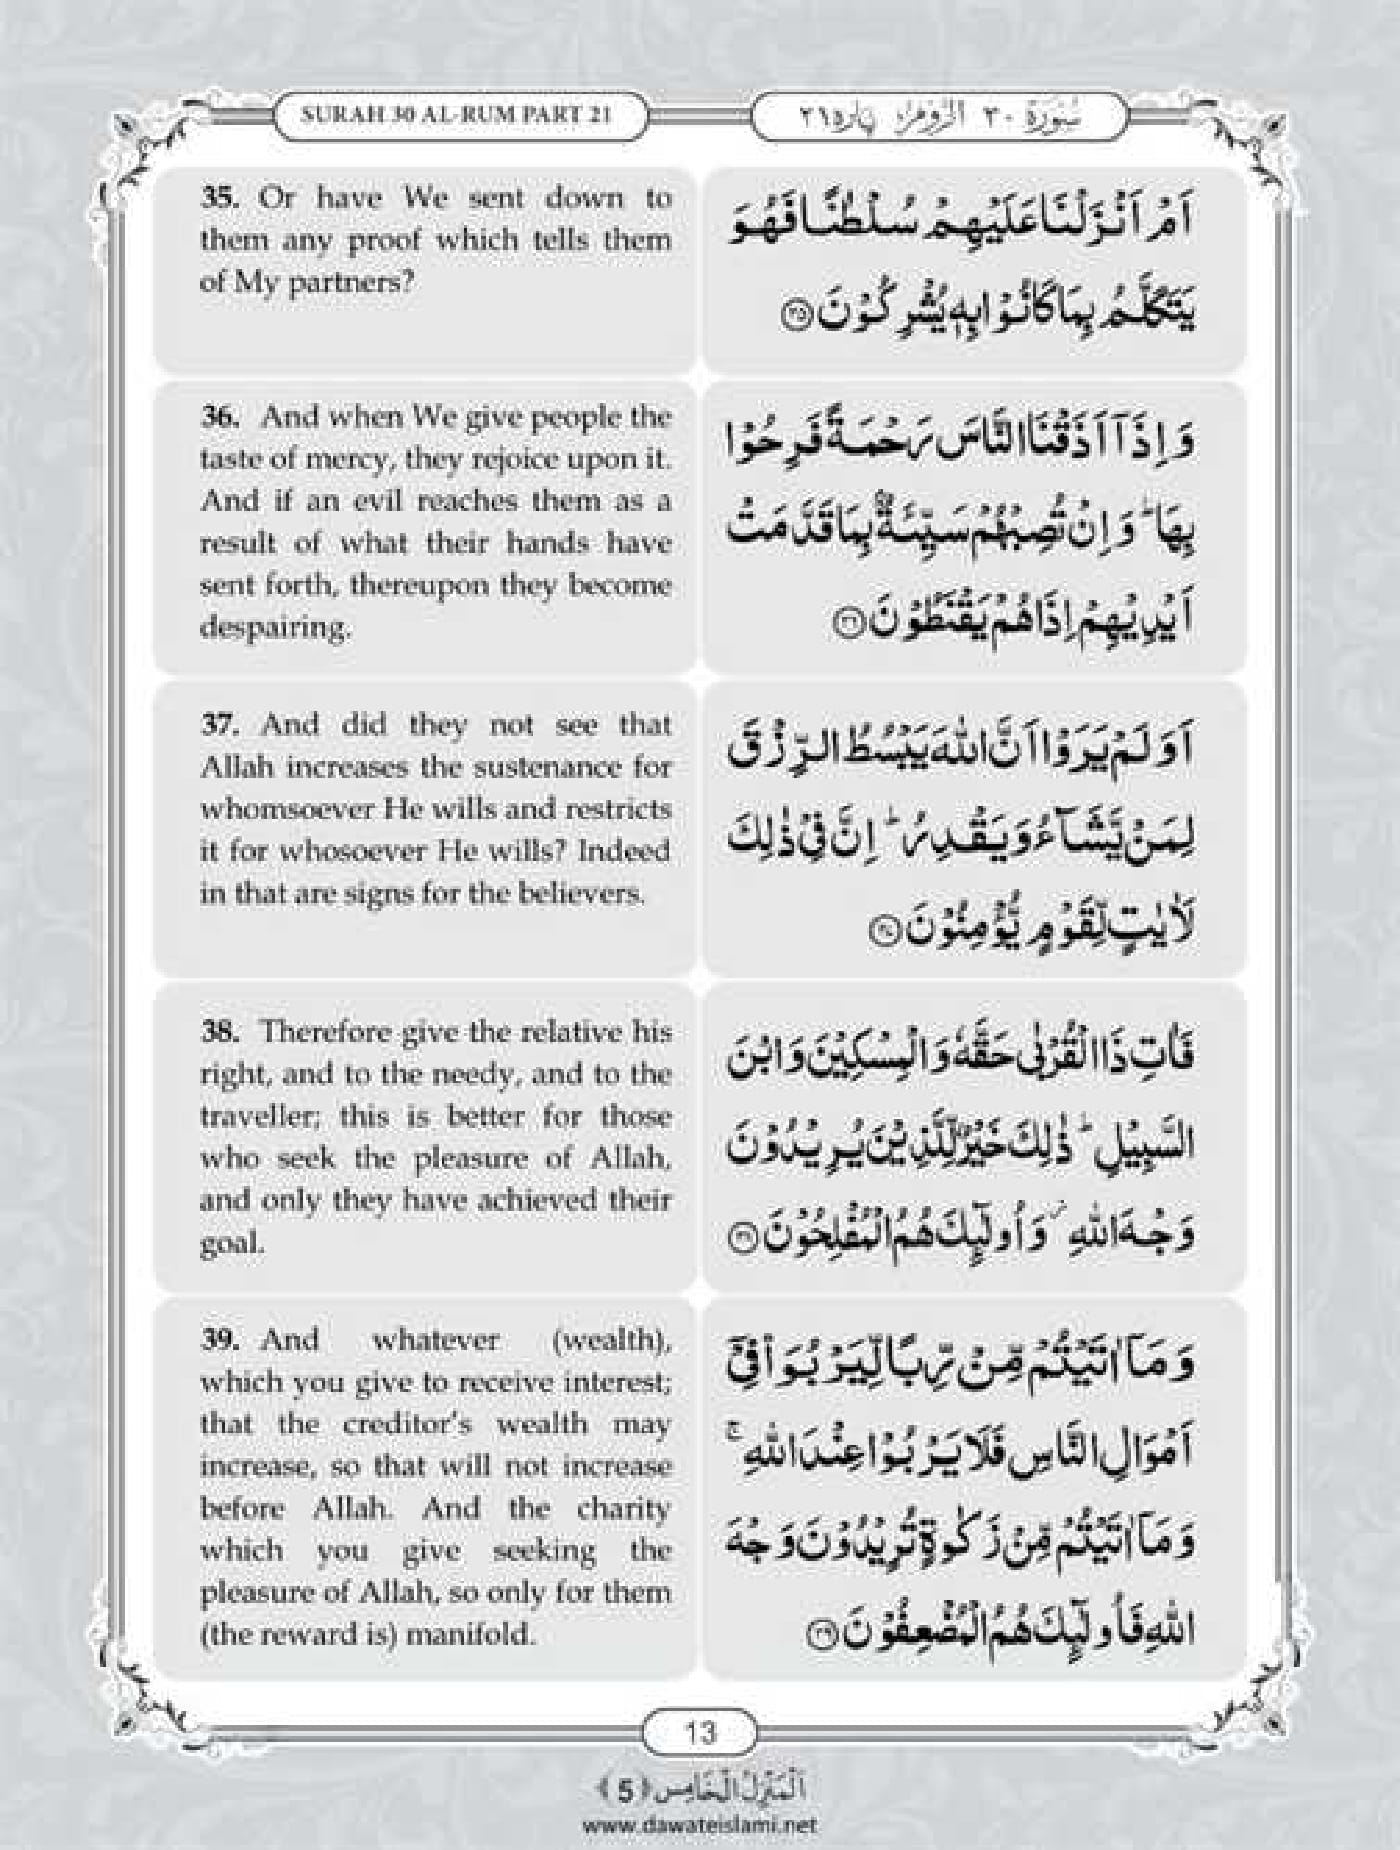 SURAH 30 AL-RUM PART 21
سُوْرَةُ ٣٠ الرُّوْمِ، پارہ ٢١
35. Or have We sent down to
them any proof which tells them
of My partners?
اَمْ اَنْزَلْنَا عَلَیْهِمْ سُلْطٰنًا فَهُوَ
یَتَكَلَّمُ بِمَا كَانُوْا بِهٖ یُشْرِكُوْنَ ﴿٣٥﴾
36. And when We give people the
taste of mercy, they rejoice upon it.
And if an evil reaches them as a
result of what their hands have
sent forth, thereupon they become
despairing.
وَ اِذَاۤ اَذَقْنَا النَّاسَ رَحْمَةً فَرِحُوْا
بِهَا ؕ وَ اِنْ تُصِبْهُمْ سَیِّئَةٌۢ بِمَا قَدَّمَتْ
اَیْدِیْهِمْ اِذَا هُمْ یَقْنَطُوْنَ ﴿٣٦﴾
37. And did they not see that
Allah increases the sustenance for
whomsoever He wills and restricts
it for whosoever He wills? Indeed
in that are signs for the believers.
اَوَ لَمْ یَرَوْا اَنَّ اللّٰهَ یَبْسُطُ الرِّزْقَ
لِمَنْ یَّشَآءُ وَ یَقْدِرُ ؕ اِنَّ فِیْ ذٰلِكَ
لَاٰیٰتٍ لِّقَوْمٍ یُّؤْمِنُوْنَ ﴿٣٧﴾
38. Therefore give the relative his
right, and to the needy, and to the
traveller; this is better for those
who seek the pleasure of Allah,
and only they have achieved their
goal.
فَاٰتِ ذَا الْقُرْبٰى حَقَّهٗ وَ الْمِسْكِیْنَ وَ ابْنَ
السَّبِیْلِ ؕ ذٰلِكَ خَیْرٌ لِّلَّذِیْنَ یُرِیْدُوْنَ
وَجْهَ اللّٰهِ ؗ وَ اُولٰٓىِٕكَ هُمُ الْمُفْلِحُوْنَ ﴿٣٨﴾
39. And whatever (wealth),
which you give to receive interest;
that the creditor's wealth may
increase, so that will not increase
before Allah. And the charity
which you give seeking the
pleasure of Allah, so only for them
(the reward is) manifold.
وَ مَاۤ اٰتَیْتُمْ مِّنْ رِّبًا لِّیَرْبُوَاۡ فِیْۤ
اَمْوَالِ النَّاسِ فَلَا یَرْبُوْا عِنْدَ اللّٰهِ ۚ
وَ مَاۤ اٰتَیْتُمْ مِّنْ زَكٰوةٍ تُرِیْدُوْنَ وَجْهَ
اللّٰهِ فَاُولٰٓىِٕكَ هُمُ الْمُضْعِفُوْنَ ﴿٣٩﴾
13
اَلْمَنْزِلُ الْخَامِس ﴿5﴾
www.dawateislami.net